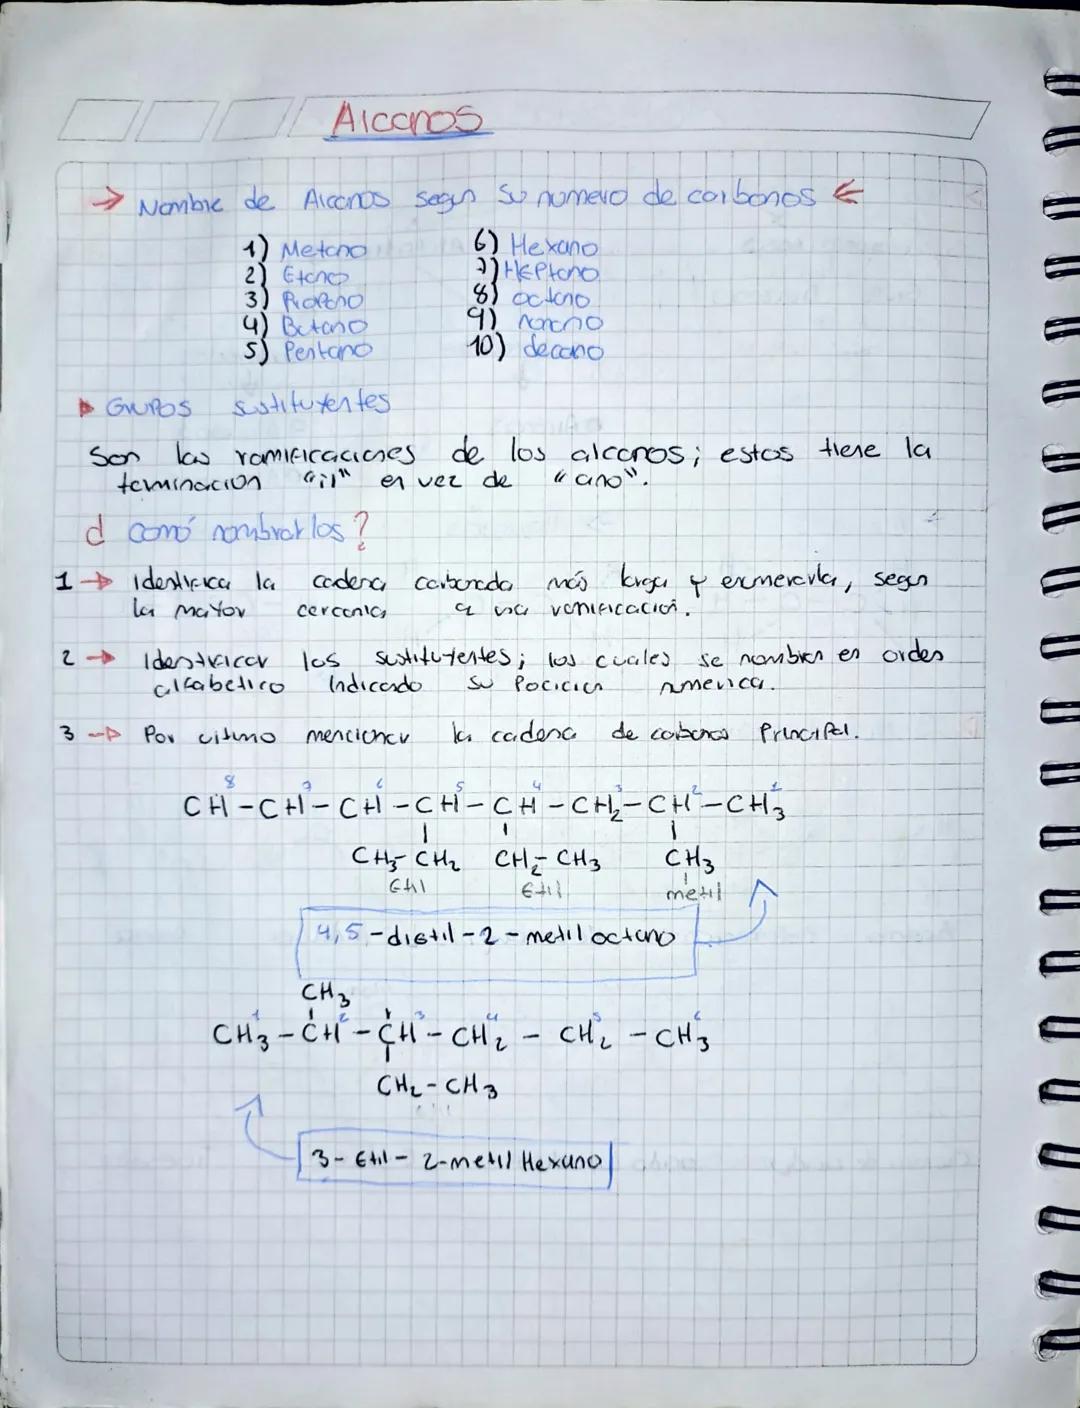 Alcanos
→ Nombre de Alcanos segun su numero de carbonos ←
1) Metano
2) Etano
3) Propano
4) Butano
5) Pentano
6) Hexano
7) HEPtano
8) octano
9) nonano
10) decano
GRUPOS sustituyentes
Son las ramificaciones de los alcanos; estas tiene la
terminacion "il" en vez de "ano".
¿ comó nombrarlos?
1 → Identifica la cadena carbonada más larga y enumerarla, segun
la mayor cercania a una ramificación.
2 → Identificar los sustituyentes; los cuales se nombran en orden
alfabetico Indicando su Pocicion numerica.
3 → Por ultimo mencionar la cadena de carbonos Principal.
8 7 6 5 4 3 2 1
CH-CH-CH-CH-CH-CH₂-CH-CH₃
CH₃-CH₂ CH₂-CH₃ CH₃
Etil Etil metil
4,5-dietil-2-metil octano
CH₃
1 2 3 4 5 6
CH₃-CH-CH-CH₂-CH₂-CH₃
CH₂-CH₃
3-Etil-2-metil Hexano